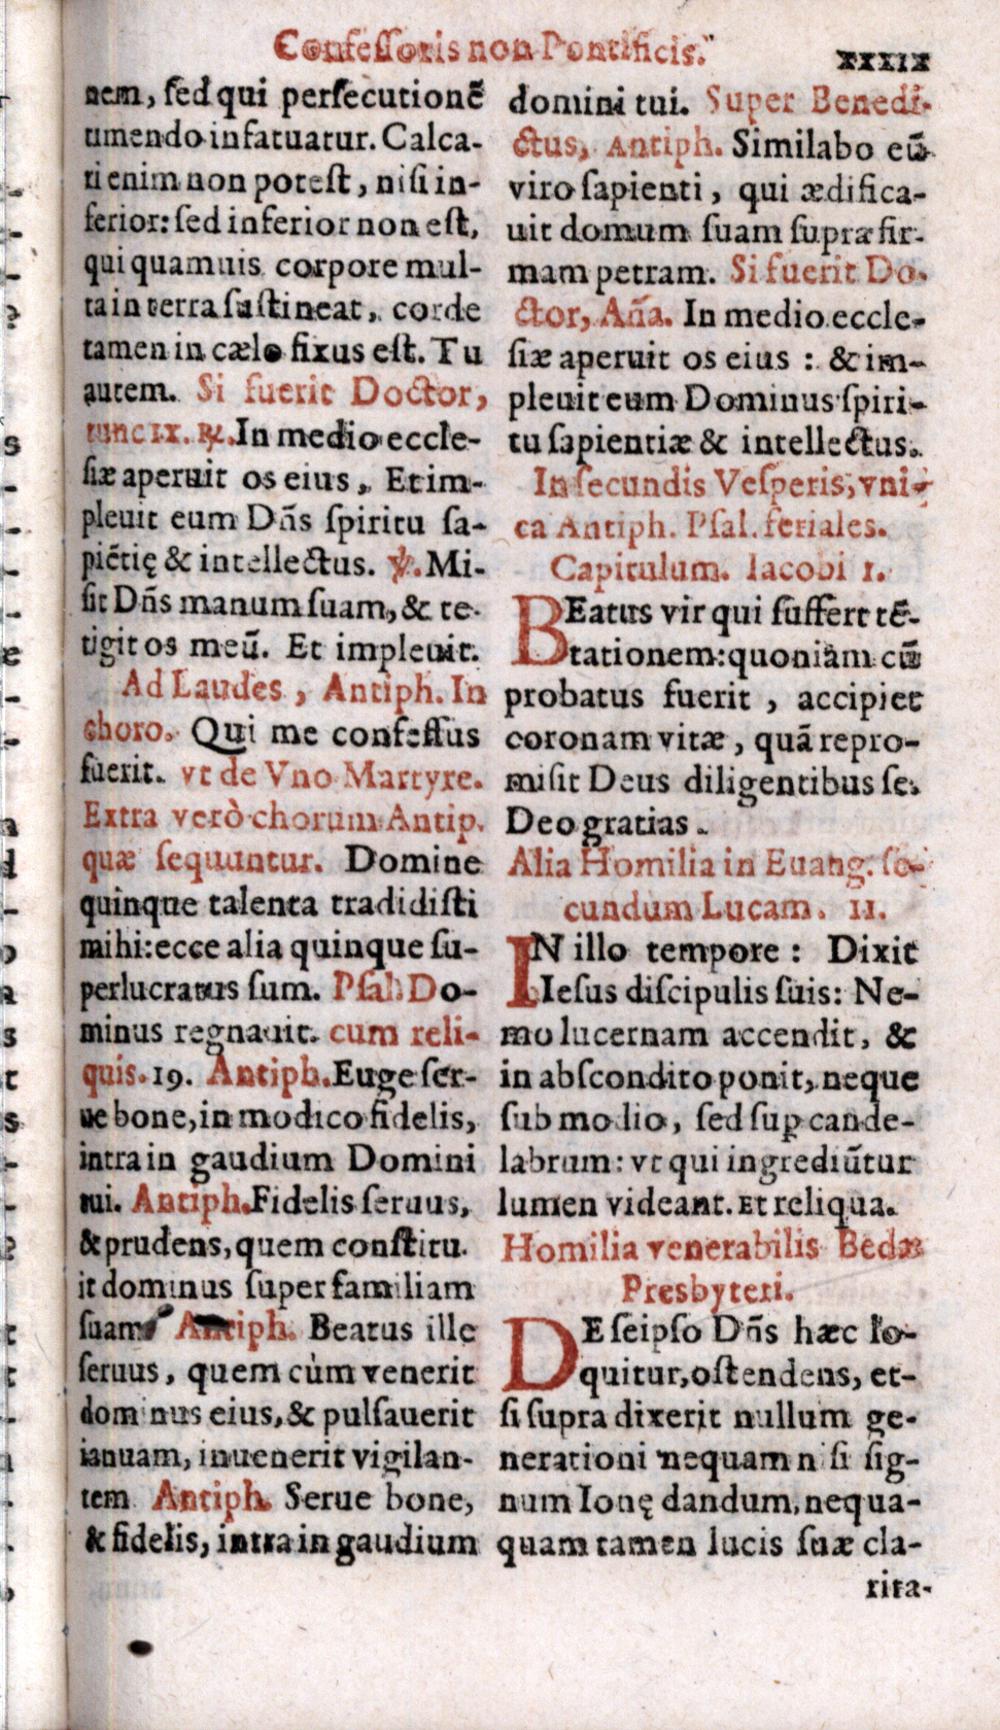 Confessoris non Pontificis.
xxxix
nem, sed qui persecutionē
timendo infatuatur. Calca-
ri enim non potest, nisi in-
ferior: sed inferior non est,
qui quamuis corpore mul-
ta in terra sustineat, corde
tamen in cælo fixus est. Tu
autem. Si fuerit Doctor,
tunc ix. ℟. In medio eccle-
siæ aperuit os eius, Et im-
pleuit eum Dñs spiritu sa-
piētię & intellectus. ℣. Mi-
sit Dñs manum suam, & te-
tigit os meū. Et impleuit.
Ad Laudes, Antiph. In
choro. Qui me confessus
fuerit. vt de Vno Martyre.
Extra verò chorum Antip.
quæ sequuntur. Domine
quinque talenta tradidisti
mihi: ecce alia quinque su-
perlucratus sum. Psal. Do-
minus regnauit. cum reli-
quis. 19. Antiph. Euge ser-
ue bone, in modico fidelis,
intra in gaudium Domini
tui. Antiph. Fidelis seruus,
& prudens, quem constitu-
it dominus super familiam
suam Antiph. Beatus ille
seruus, quem cùm venerit
dominus eius, & pulsauerit
ianuam, inuenerit vigilan-
tem Antiph. Serue bone,
& fidelis, intra in gaudium
domini tui. Super Benedi-
ctus, Antiph. Similabo eū
viro sapienti, qui ædifica-
uit domum suam supra fir-
mam petram. Si fuerit Do-
ctor, Aña. In medio eccle-
siæ aperuit os eius: & im-
pleuit eum Dominus spiri-
tu sapientiæ & intellectus.
In secundis Vesperis, vni-
ca Antiph. Psal. feriales.
Capitulum. Iacobi 1.
BEatus vir qui suffert tē-
tationem: quoniam cū
probatus fuerit, accipiet
coronam vitæ, quā repro-
misit Deus diligentibus se.
Deo gratias.
Alia Homilia in Euang. se-
cundum Lucam. 11.
IN illo tempore: Dixit
Iesus discipulis suis: Ne-
mo lucernam accendit, &
in abscondito ponit, neque
sub modio, sed sup cande-
labrum: vt qui ingrediūtur
lumen videant. Et reliqua.
Homilia venerabilis Bedæ
Presbyteri.
DE seipso Dñs hæc lo-
quitur, ostendens, et-
si supra dixerit nullum ge-
nerationi nequam nisi sig-
num Ionę dandum, nequa-
quam tamen lucis suæ cla-
rita-